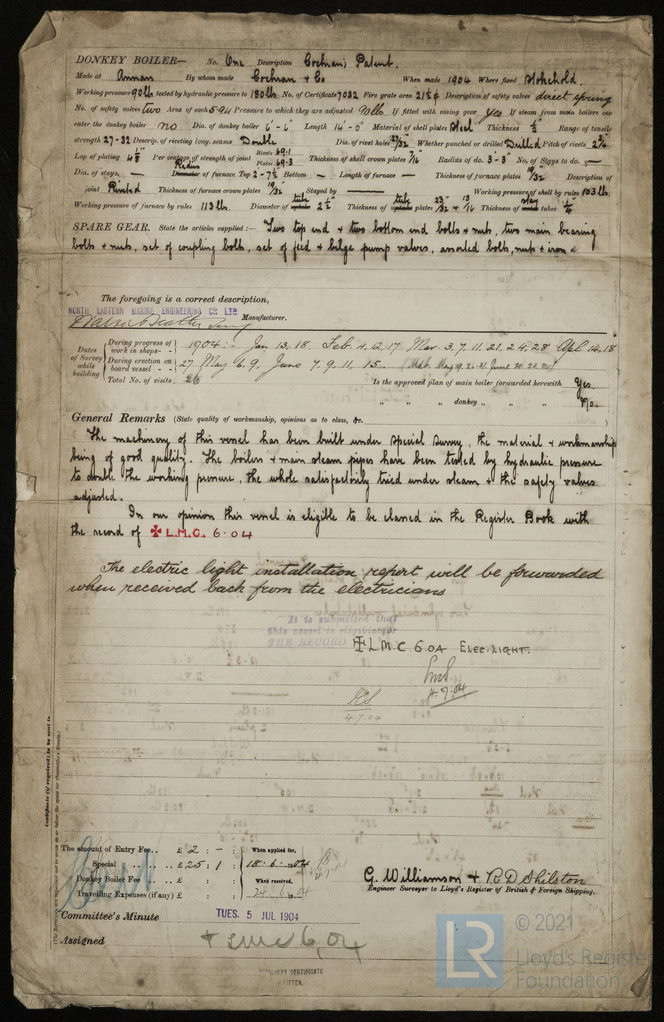 DONKEY BOILER— No. One Description Cochran's Patent.
Made at Annan By whom made Cochran & Co When made 1904 Where fixed Stokehold.
Working pressure 90 lb tested by hydraulic pressure to 180 lb No. of Certificate 7032 Fire grate area 21½ Description of safety valves direct spring
No. of safety valves two Area of each 5.94 Pressure to which they are adjusted 90 lb If fitted with easing gear Yes If steam from main boilers can
enter the donkey boiler no Dia. of donkey boiler 6'-6" Length 14'-0" Material of shell plates Steel Thickness ½" Range of tensile
strength 27-32 Descrip. of riveting long. seams Double Dia. of rivet holes 27/32 Whether punched or drilled Drilled Pitch of rivets 2¾"
Lap of plating 4⅝" Per centage of strength of joint Rivets 69.1 Plates 69.3 Thickness of shell crown plates 9/16 Radius of do. 3'-3" No. of Stays to do. —
Dia. of stays. — Radius of furnace Top 2'-7½" Bottom — Length of furnace — Thickness of furnace plates 19/32 Description of
joint Riveted Thickness of furnace crown plates 19/32 Stayed by — Working pressure of shell by rules 103 lb.
Working pressure of furnace by rules 113 lb. Diameter of tube 2½" Thickness of tube plates 23/32 + 13/16 Thickness of stay tubes ¼
SPARE GEAR. State the articles supplied:— Two top end & two bottom end bolts & nuts, two main bearing
bolts & nuts, set of coupling bolts, set of feed & bilge pump valves, assorted bolts, nuts & iron
The foregoing is a correct description,
NORTH EASTERN MARINE ENGINEERING CO LTD
Manufacturer.
Dates of Survey while building
During progress of work in shops - - 1904:- Jan 13, 18. Feb 4, 12, 17. Mar 3, 7, 11, 21, 24, 28 Apl 14, 18
During erection on board vessel - - - 27 May 6, 9, June 7, 9, 11, 15.
Total No. of visits 26
Is the approved plan of main boiler forwarded herewith Yes.
" " " donkey " " No.
General Remarks (State quality of workmanship, opinions as to class, &c.
The machinery of this vessel has been built under special survey, the material & workmanship
being of good quality. The boilers & main steam pipes have been tested by hydraulic pressure
to double the working pressure, the whole satisfactorily tried under steam & the safety valves
adjusted.
In our opinion this vessel is eligible to be classed in the Register Book with
the record of ✠ L.M.C. 6.04
The electric light installation report will be forwarded
when received back from the electricians
It is submitted that
this vessel is eligible for
THE RECORD
✠ L.M.C 6.04 ELEC. LIGHT.
4.7.04
4.7.04
Certificate (if required) to be sent to
The amount of Entry Fee.. £ 2 : - :
Special .. .. £ 25 : 1 :
Donkey Boiler Fee .. .. £ : :
Travelling Expenses (if any) £ : :
When applied for,
18.6.1904
When received,
24.6.04
G. Williamson & R D Shilston
Engineer Surveyor to Lloyd's Register of British & Foreign Shipping.
Committee's Minute TUES. 5 JUL 1904
Assigned + LMC 6,04
MACHINERY CERTIFICATE
WRITTEN.
LR
© 2021
Lloyd's Register
Foundation